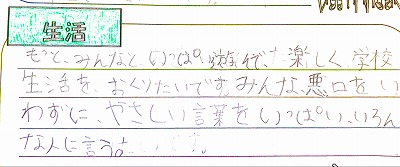 生活
もっと、みんなと、いっぱい遊んで、楽しく、学校
生活を、おくりたいです。みんな、悪口をい
わずに、やさしい言葉をいっぱい、いろん
な人に言うたいです。